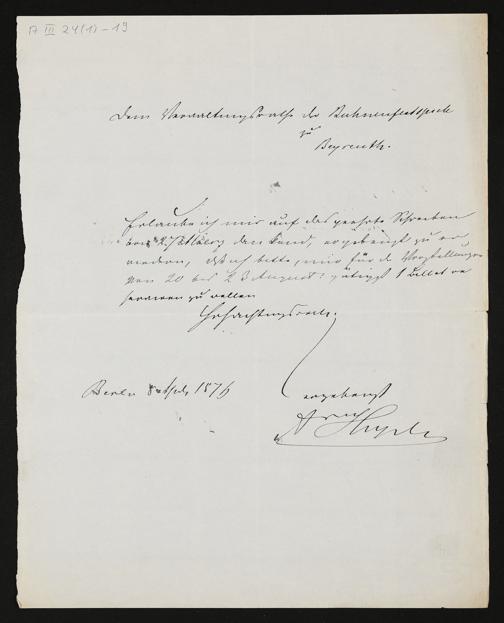 A III 24(1)-19
Dem Verwaltungsrathe der Bühnenfestspiele
zu
Bayreuth.
Erlaube ich mir auf das geehrte Schreiben
dankend, ergebenst zu er-
wiedern, daß ich bitte, mir für die Vorstellungen
von 20 bis 23 August gütigst 1 Billet re
serviren zu wollen
Hochachtungsvoll
Berlin 1876
ergebenst